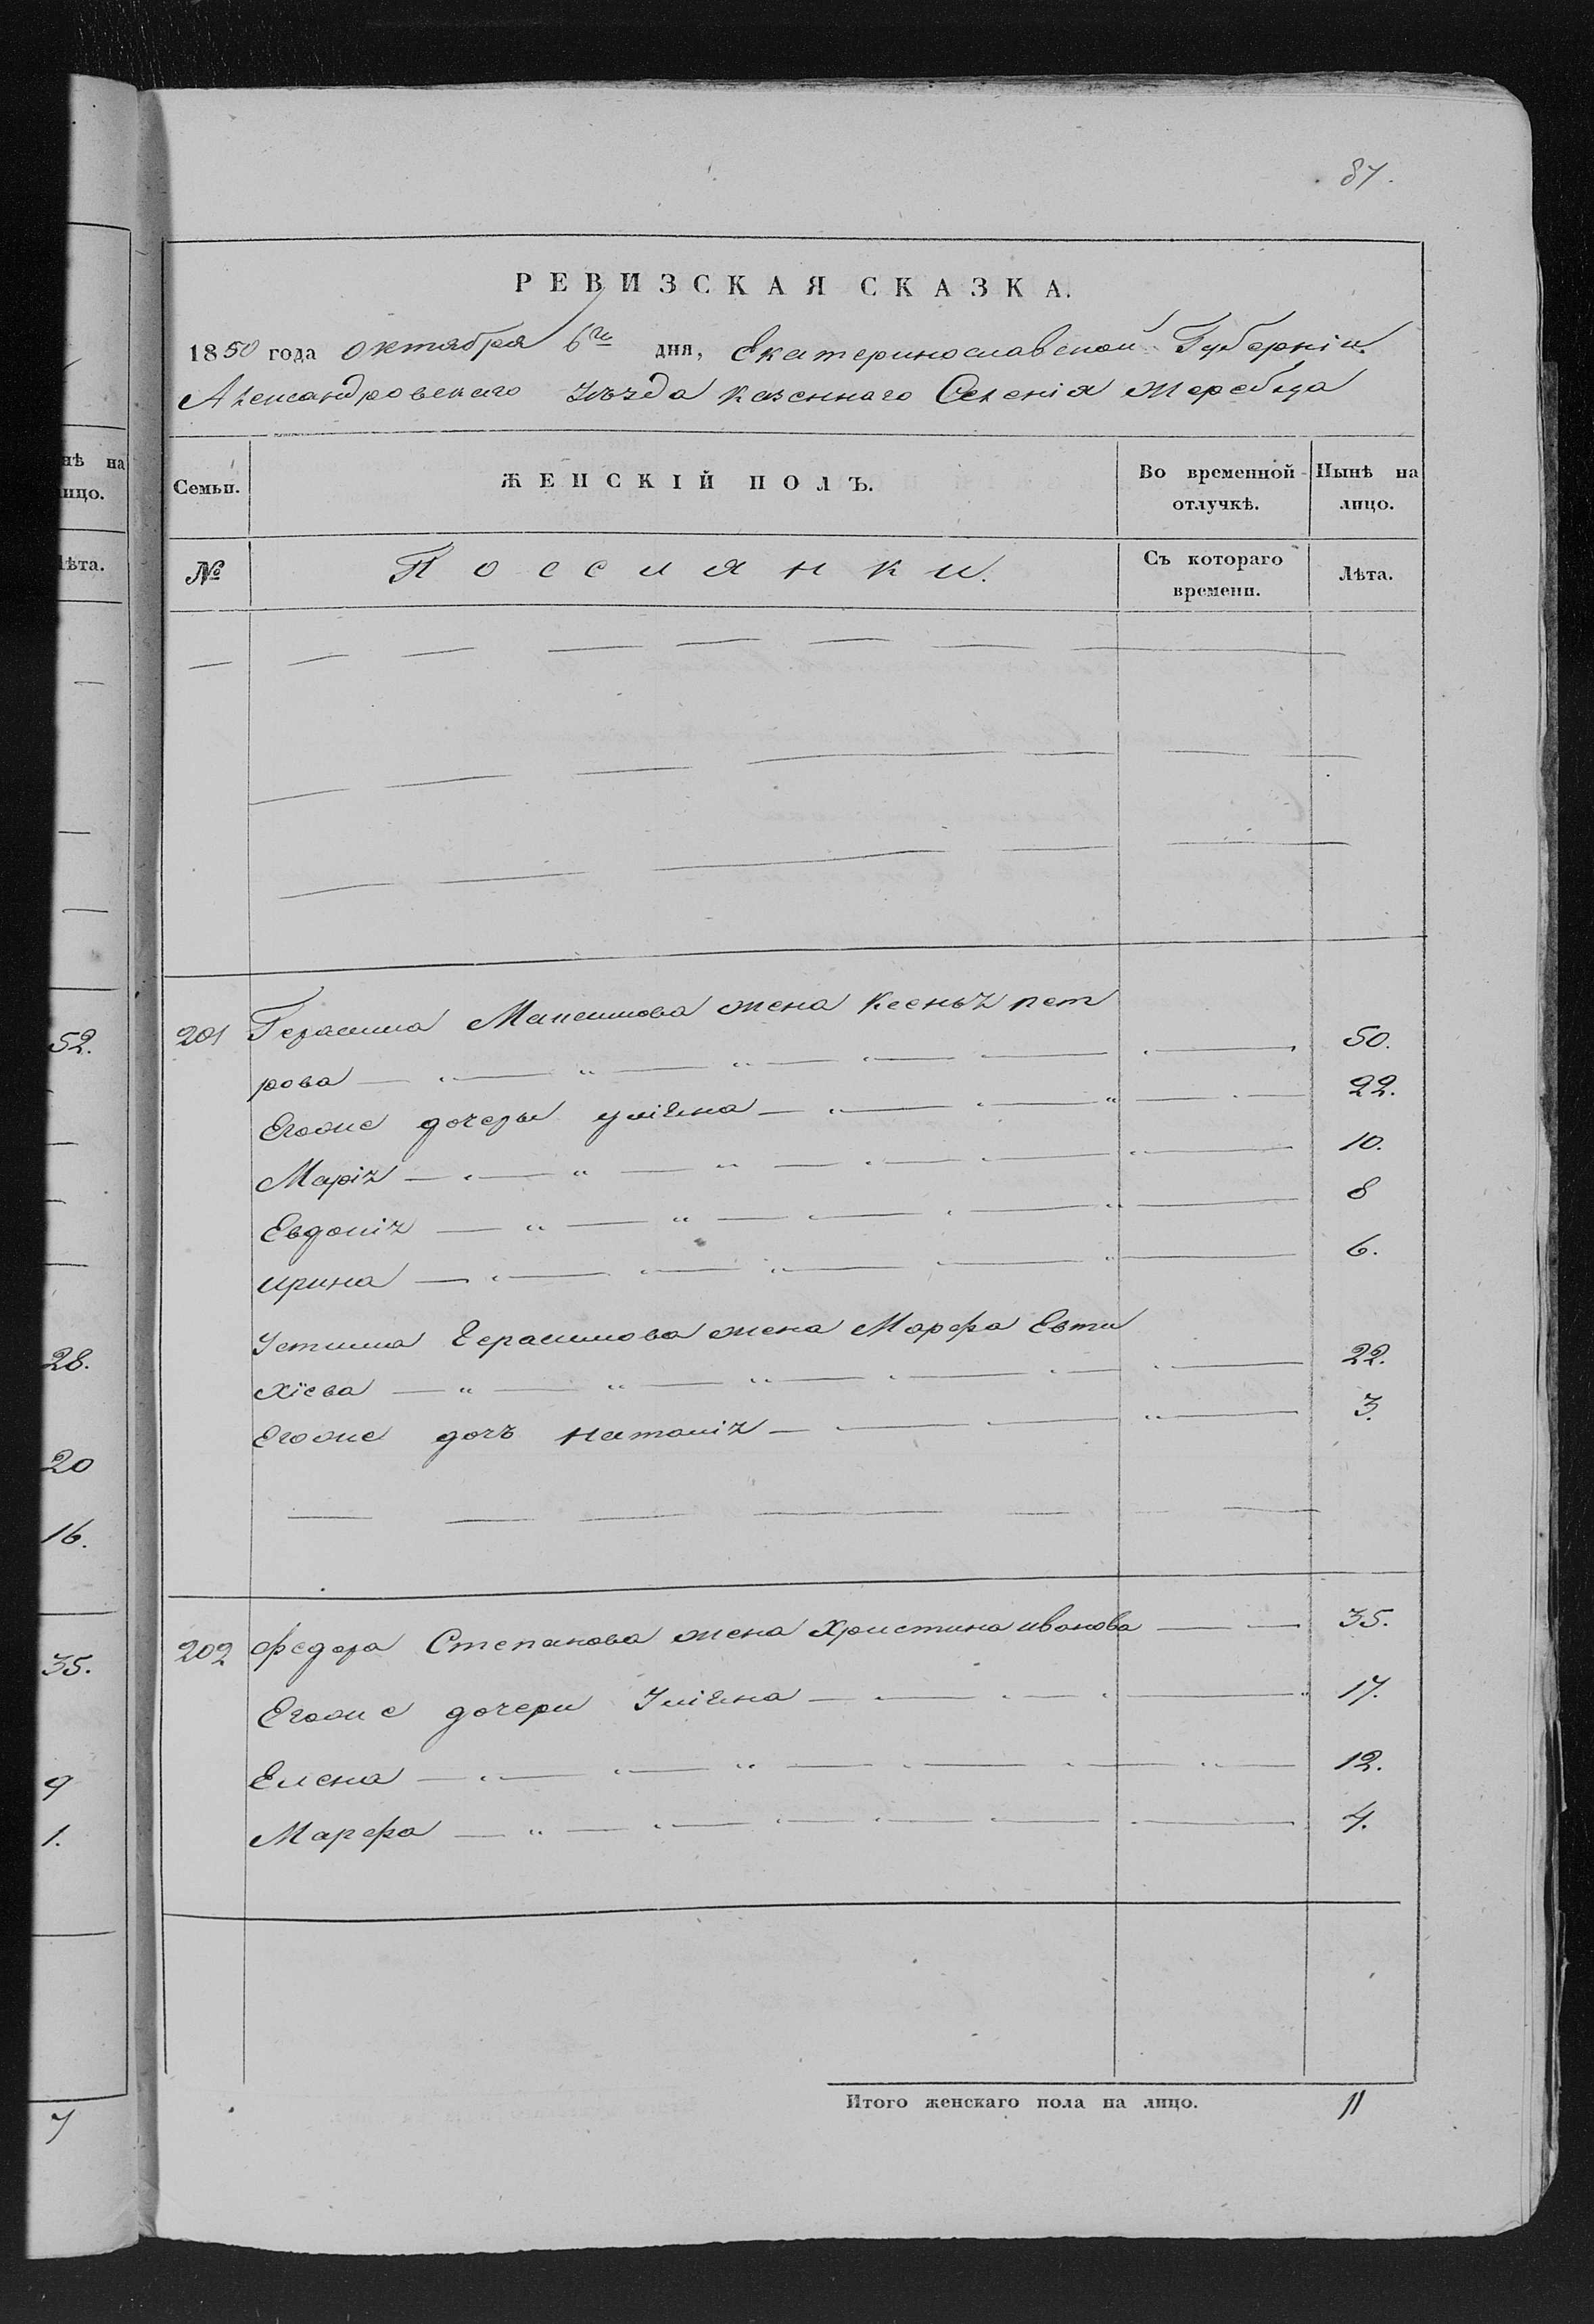 87.
РЕВИЗСКАЯ СКАЗКА.
1850 года октября 6го дня, Екатеринославской Губерніи
Александровскаго Уѣзда казеннаго Селенія Жеребца
Семьи.
ЖЕНСКІЙ ПОЛЪ.
Во временной отлучкѣ.
Нынѣ на лицо.
№
Поселянки.
Съ котораго времени.
Лѣта.
201 Герасима Максимова жена Ксенья пет
рова 50.
Егоже дочеры уліяна 22.
Марія 10.
Евдокія 8
ирина 6.
Устима Герасимова жена Марфа Евти
хіева 22.
Егоже дочъ наталія 3.
202 федора Степанова жена Христина иванова 35.
Егоже дочери Уліяна 17.
Елена 12.
Марфа 4.
Итого женскаго пола на лицо. 11
нѣ на
ицо.
лѣта.
52.
28.
20
16.
35.
9
1.
7